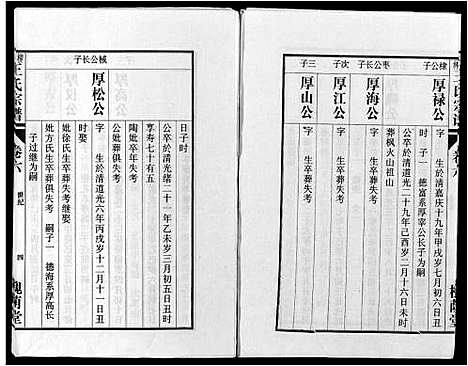 棣公子
厚禄公
字　生於清嘉庆十九年甲戌岁二月初七日
时　子一　德富系厚宰公长子为嗣
公卒於清光二十九年己酉岁二月十六日未时
葬枫火山祖山
枣公长子
厚海公
字　生卒葬失考
次子
厚江公
字　生卒葬失考
三子
厚山公
字　生卒葬失考
槐荫堂
王氏宗谱
卷六
世纪
四
槐荫堂
械公长子
厚松公
字　生於清道光六年丙戌岁十二月十一日
时娶
妣徐氏生卒葬失考继娶
妣方氏生卒葬俱失考　嗣子一　德海系厚高长
子过继为嗣
公卒於清光绪二十一年乙未岁三月初五日丑时
公妣葬俱失考
陶妣卒年失考
享寿七十有五
日子时